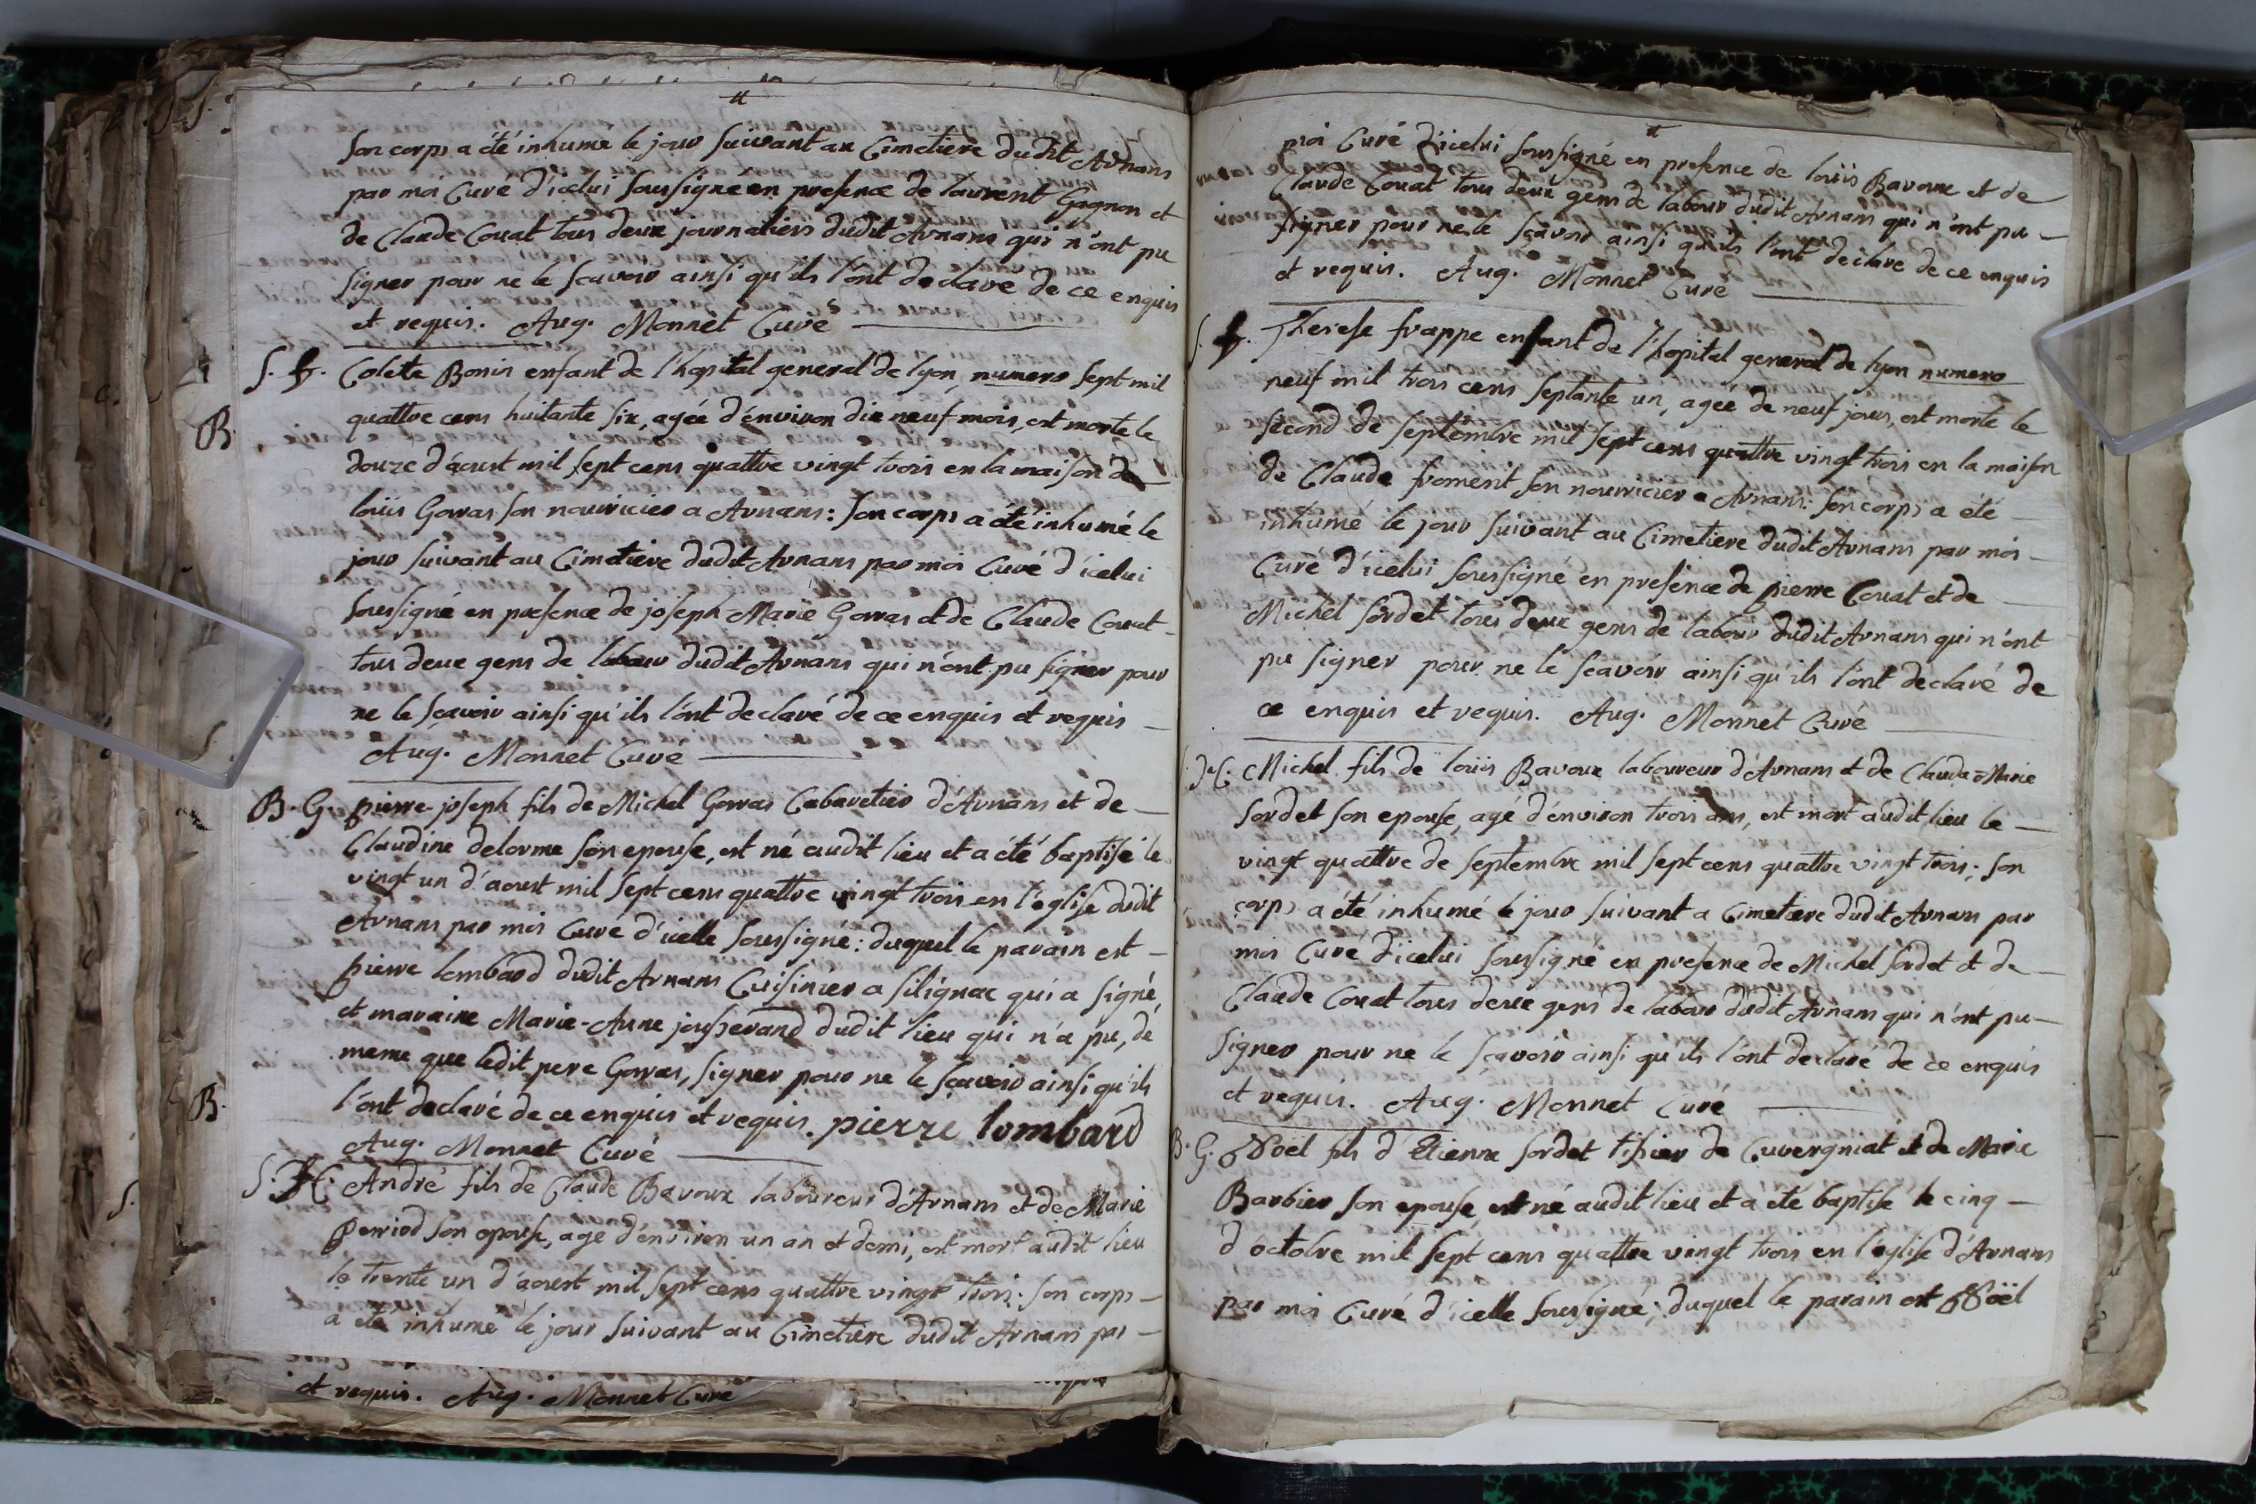 son corps a été inhumé le jour suivant au Cimetiere dudit Arnans
par moi Curé d'icelui soussigné en presence de laurent Gagnon et
de Claude Couat tous deux journaliers dudit Arnans qui n'ont pu
signer pour ne le sçavoir ainsi qu'ils l'ont declaré de ce enquis
et requis. Aug. Monnet Curé
S. f. Colete Bonin enfant de l'hopital general de lyon, numero sept mil
quattre cens huitante six, agée d'environ dix neuf mois, est morte le
douze d'aoust mil sept cens quattre vingt trois en la maison de
loüis Gorras son nourricier a Arnans: son corps a été inhumé le
jour suivant au Cimetiere dudit Arnans par moi Curé d'icelui
soussigné en presence de joseph Marie Gorras et de Claude Couat
tous deux gens de labour dudit Arnans qui n'ont pu signer pour
ne le sçavoir ainsi qu'ils l'ont declaré de ce enquis et requis
Aug. Monnet Curé
B. G. pierre-joseph fils de Michel Gorras Cabaretier d'Arnans et de
Claudine delorme son epouse, est né audit lieu et a été baptisé le
vingt un d'aoust mil sept cens quattre vingt trois en l'église dudit
Arnans par moi Curé d'icelle soussigné: duquel le parain est
pierre lombard dudit Arnans Cuisinier a silignac qui a signé,
et maraine Marie-Anne jousserand dudit lieu qui n'a pu, de
meme que ledit pere Gorras, signer pour ne le sçavoir ainsi qu'ils
l'ont declaré de ce enquis et requis. pierre lombard
Aug. Monnet Curé
S. H. André fils de Claude Bavoux laboureur d'Arnans et de Marie
perriod son epouse, agé d'environ un an et demi, est mort audit lieu
le trente un d'aoust mil sept cens quattre vingt trois: son corps
a été inhumé le jour suivant au Cimetiere dudit Arnans par
et requis. Aug. Monnet Curé
B.
B.
S.
moi Curé d'icelui soussigné en presence de loüis Bavoux et de
Claude Couat tous deux gens de labour dudit Arnans qui n'ont pu
signer pour ne le sçavoir ainsi qu'ils l'ont declaré de ce enquis
et requis. Aug. Monnet Curé
S. f. Therese frappe enfant de l'hopital general de lyon numero
neuf mil trois cens septante un, agée de neuf jours, est morte le
second de septembre mil sept cens quattre vingt trois en la maison
de Claude froment son nourricier a Arnans: son corps a été
inhumé le jour suivant au Cimetiere dudit Arnans par moi
Curé d'icelui soussigné en presence de pierre Couat et de
Michel sordet tous deux gens de labour dudit Arnans qui n'ont
pu signer pour ne le sçavoir ainsi qu'ils l'ont declaré de
ce enquis et requis. Aug. Monnet Curé
Michel fils de loüis Bavoux laboureur d'Arnans et de Claudα-Marie
sordet son epouse, agé d'environ trois ans, est mort audit lieu le
vingt quattre de septembre mil sept cens quattre vingt trois; son
corps a été inhumé le jour suivant a Cimetiere dudit Arnans par
moi Curé d'icelui soussigné en presence de Michel sordet et de
Claude Couat tous deux gens de labour dudit Arnans qui n'ont pu
signer pour ne le sçavoir ainsi qu'ils l'ont declaré de ce enquis
et requis. Aug. Monnet Curé
B. G. Noël fils d'Etienne sordet tissier de Cuvergniat et de Marie
Barbier son epouse, est né audit lieu et a été baptisé le cinq
d'octobre mil sept cens quattre vingt trois en l'église d'Arnans
par moi Curé d'icelle soussigné; duquel le parain est Noël